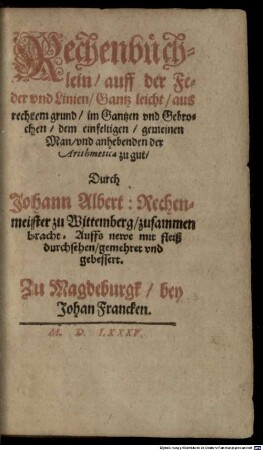 Rechenbüch-
lein/ auff der Fe-
der vnd Linien/ Gantz leicht/ aus
rechtem grund/ im Gantzen vnd Gebro-
chen/ dem einfeltigen/ gemeinen
Man/ vnd anhebenden der
Arithmetica zu gut/
Durch
Johann Albert: Rechen-
meister zu Wittemberg/ zusammen
bracht. Auffs newe mit fleiß
durchsehen/ gemehret vnd
gebessert.
Zu Magdeburgk/ bey
Johan Francken.
M. D. LXXXV.